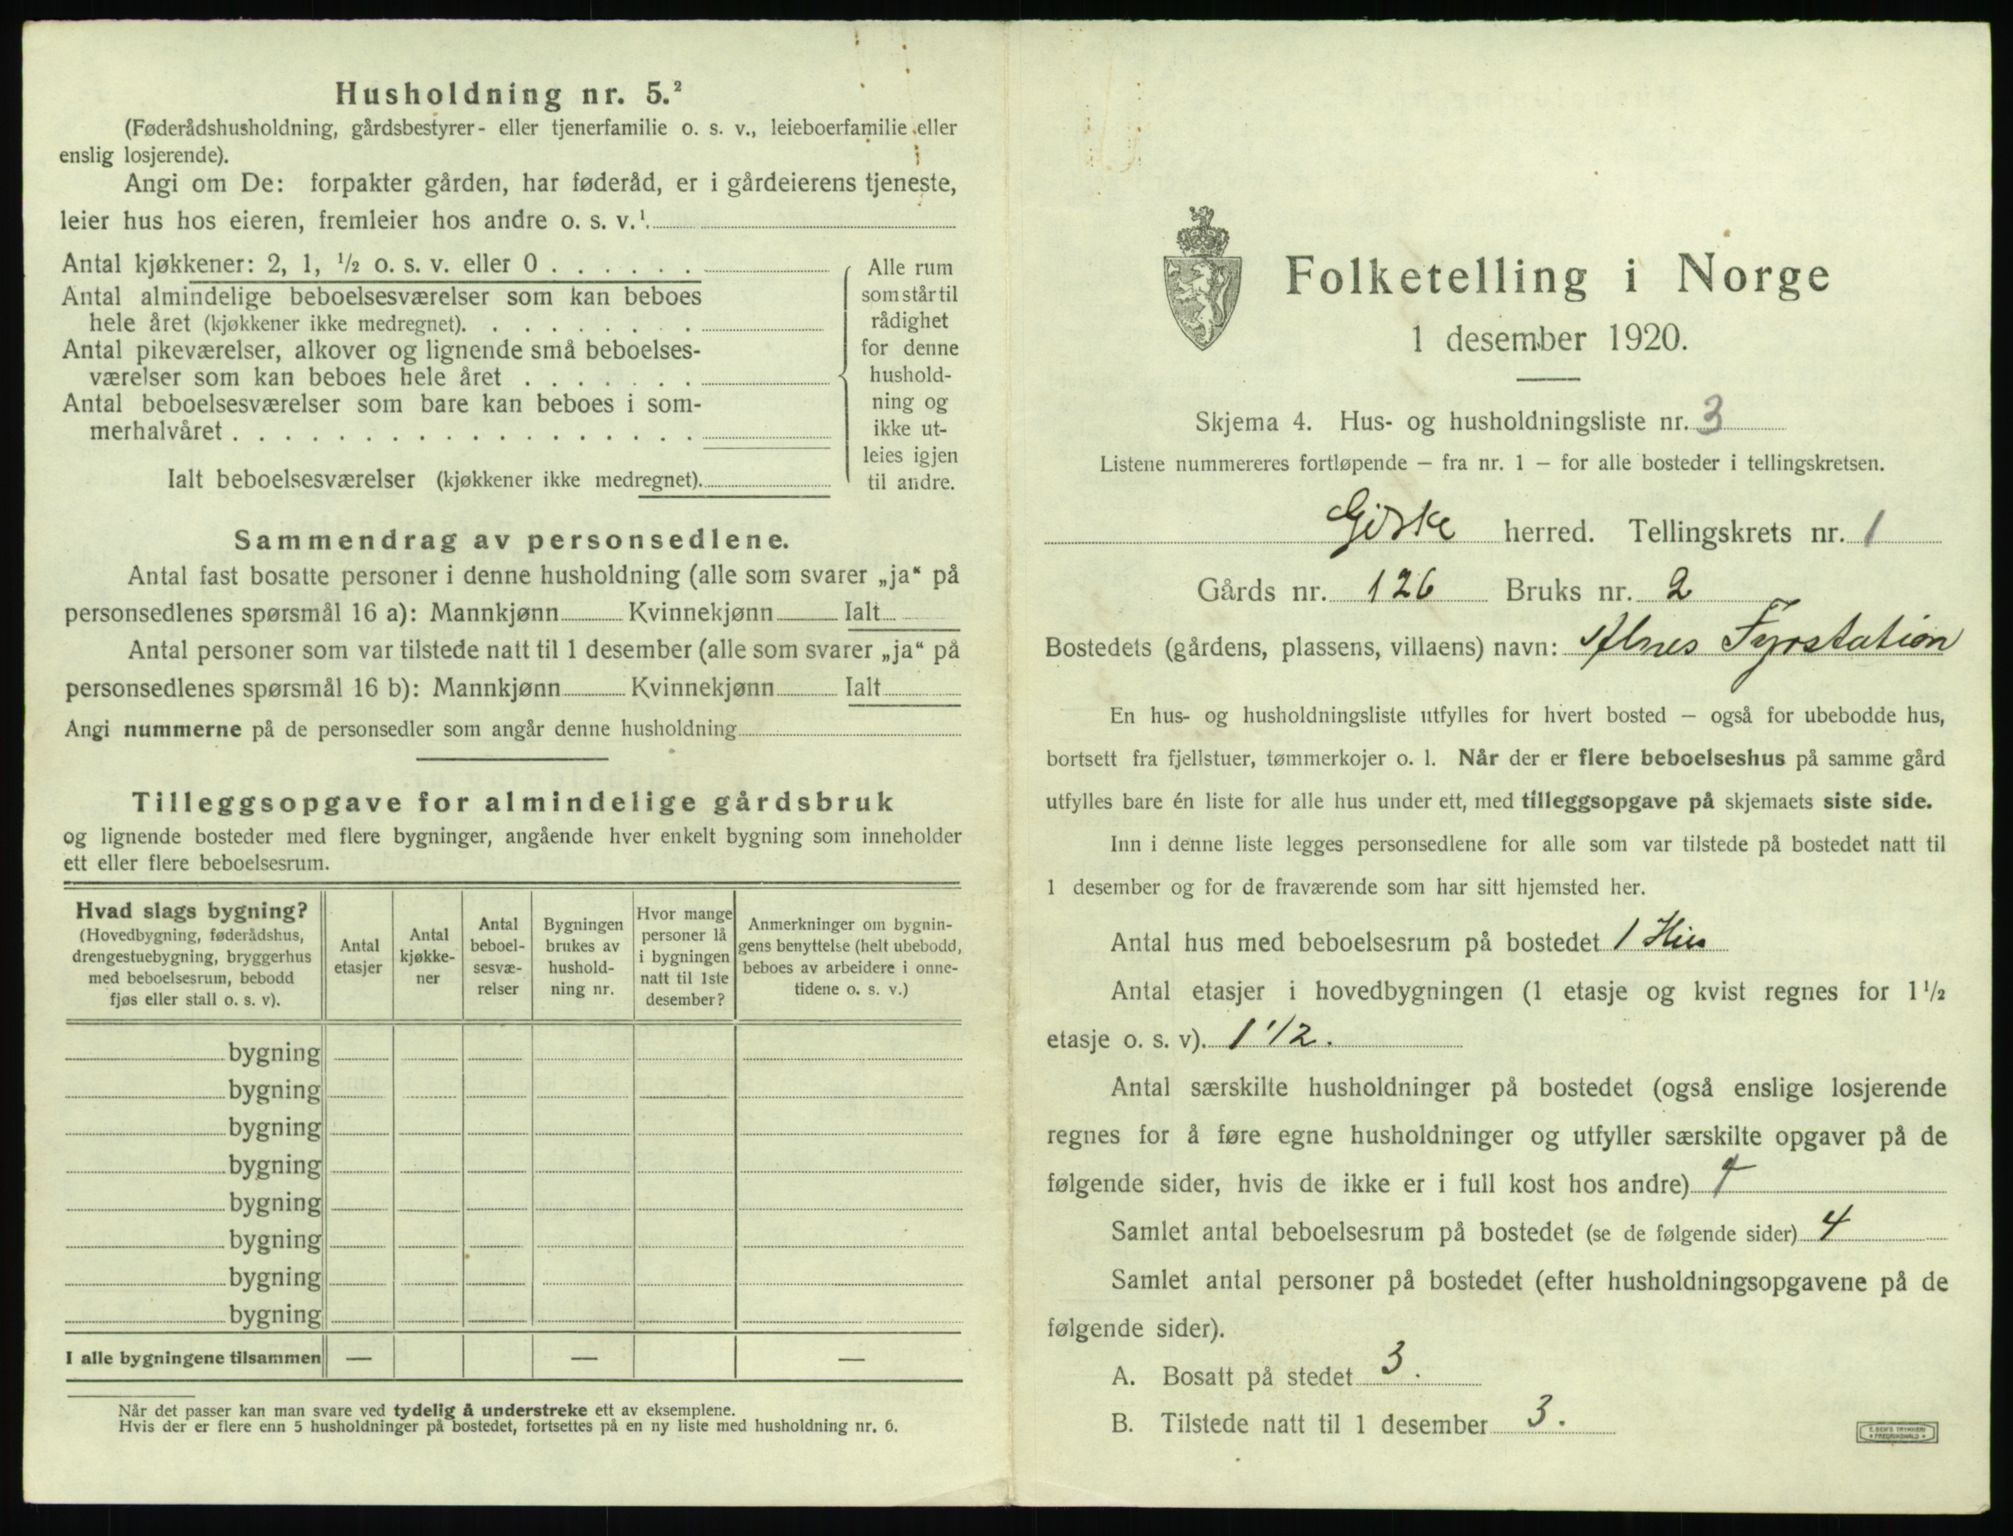 Husholdning nr. 5.²
(Føderådshusholdning, gårdsbestyrer- eller tjenerfamilie o. s. v., leieboerfamilie eller
enslig losjerende).
Angi om De: forpakter gården, har føderåd, er i gårdeierens tjeneste,
leier hus hos eieren, fremleier hos andre o. s. v.¹
Antal kjøkkener: 2, 1, ½ o. s. v. eller 0 . . . . . .
Antal almindelige beboelsesværelser som kan beboes
hele året (kjøkkener ikke medregnet). . . . . . . . .
Antal pikeværelser, alkover og lignende små beboelses-
værelser som kan beboes hele året . . . . . . .
Antal beboelsesværelser som bare kan beboes i som-
merhalvåret . . . . . . . . . . . . . . . . . .
Ialt beboelsesværelser (kjøkkener ikke medregnet).
Alle rum
som står til
rådighet
for denne
hushold-
ning og
ikke ut-
leies igjen
til andre.
Sammendrag av personsedlene.
Antal fast bosatte personer i denne husholdning (alle som svarer „ja“ på
personsedlenes spørsmål 16 a): Mannkjønn Kvinnekjønn Ialt
Antal personer som var tilstede natt til 1 desember (alle som svarer „ja“ på
personsedlenes spørsmål 16 b): Mannkjønn Kvinnekjønn Ialt
Angi nummerne på de personsedler som angår denne husholdning
Tilleggsopgave for almindelige gårdsbruk
og lignende bosteder med flere bygninger, angående hver enkelt bygning som inneholder
ett eller flere beboelsesrum.
Hvad slags bygning?
(Hovedbygning, føderådshus,
drengestuebygning, bryggerhus
med beboelsesrum, bebodd
fjøs eller stall o. s. v).
Antal
etasjer
Antal
kjøkke-
ner
Antal
beboel-
sesvæ-
relser
Bygningen
brukes av
hushold-
ning nr.
Hvor mange
personer lå
i bygningen
natt til 1ste
desember?
Anmerkninger om bygnin-
gens benyttelse (helt ubebodd,
beboes av arbeidere i onne-
tidene o. s. v.)
bygning
bygning
bygning
bygning
bygning
bygning
bygning
bygning
I alle bygningene tilsammen — — —
Når det passer kan man svare ved tydelig å understreke ett av eksemplene.
Hvis der er flere enn 5 husholdninger på bostedet, fortsettes på en ny liste med husholdning nr. 6.
Folketelling i Norge
1 desember 1920.
Skjema 4. Hus- og husholdningsliste nr. 3
Listene nummereres fortløpende — fra nr. 1 — for alle bosteder i tellingskretsen.
Giske herred. Tellingskrets nr. 1
Gårds nr. 126 Bruks nr. 2
Bostedets (gårdens, plassens, villaens) navn: Alnes Fyrstation
En hus- og husholdningsliste utfylles for hvert bosted — også for ubebodde hus,
bortsett fra fjellstuer, tømmerkojer o. l. Når der er flere beboelseshus på samme gård
utfylles bare én liste for alle hus under ett, med tilleggsopgave på skjemaets siste side.
Inn i denne liste legges personsedlene for alle som var tilstede på bostedet natt til
1 desember og for de fraværende som har sitt hjemsted her.
Antal hus med beboelsesrum på bostedet 1 Hus
Antal etasjer i hovedbygningen (1 etasje og kvist regnes for 1½
etasje o. s. v). 1 1/2.
Antal særskilte husholdninger på bostedet (også enslige losjerende
regnes for å føre egne husholdninger og utfyller særskilte opgaver på de
følgende sider, hvis de ikke er i full kost hos andre) 1
Samlet antal beboelsesrum på bostedet (se de følgende sider) 4
Samlet antal personer på bostedet (efter husholdningsopgavene på de
følgende sider).
A. Bosatt på stedet 3.
B. Tilstede natt til 1 desember 3.